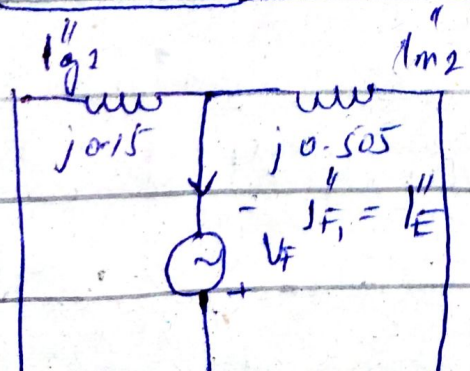 I"g2 I"m2
j0.15 j0.505
- I"F1 = I"F
VF
+